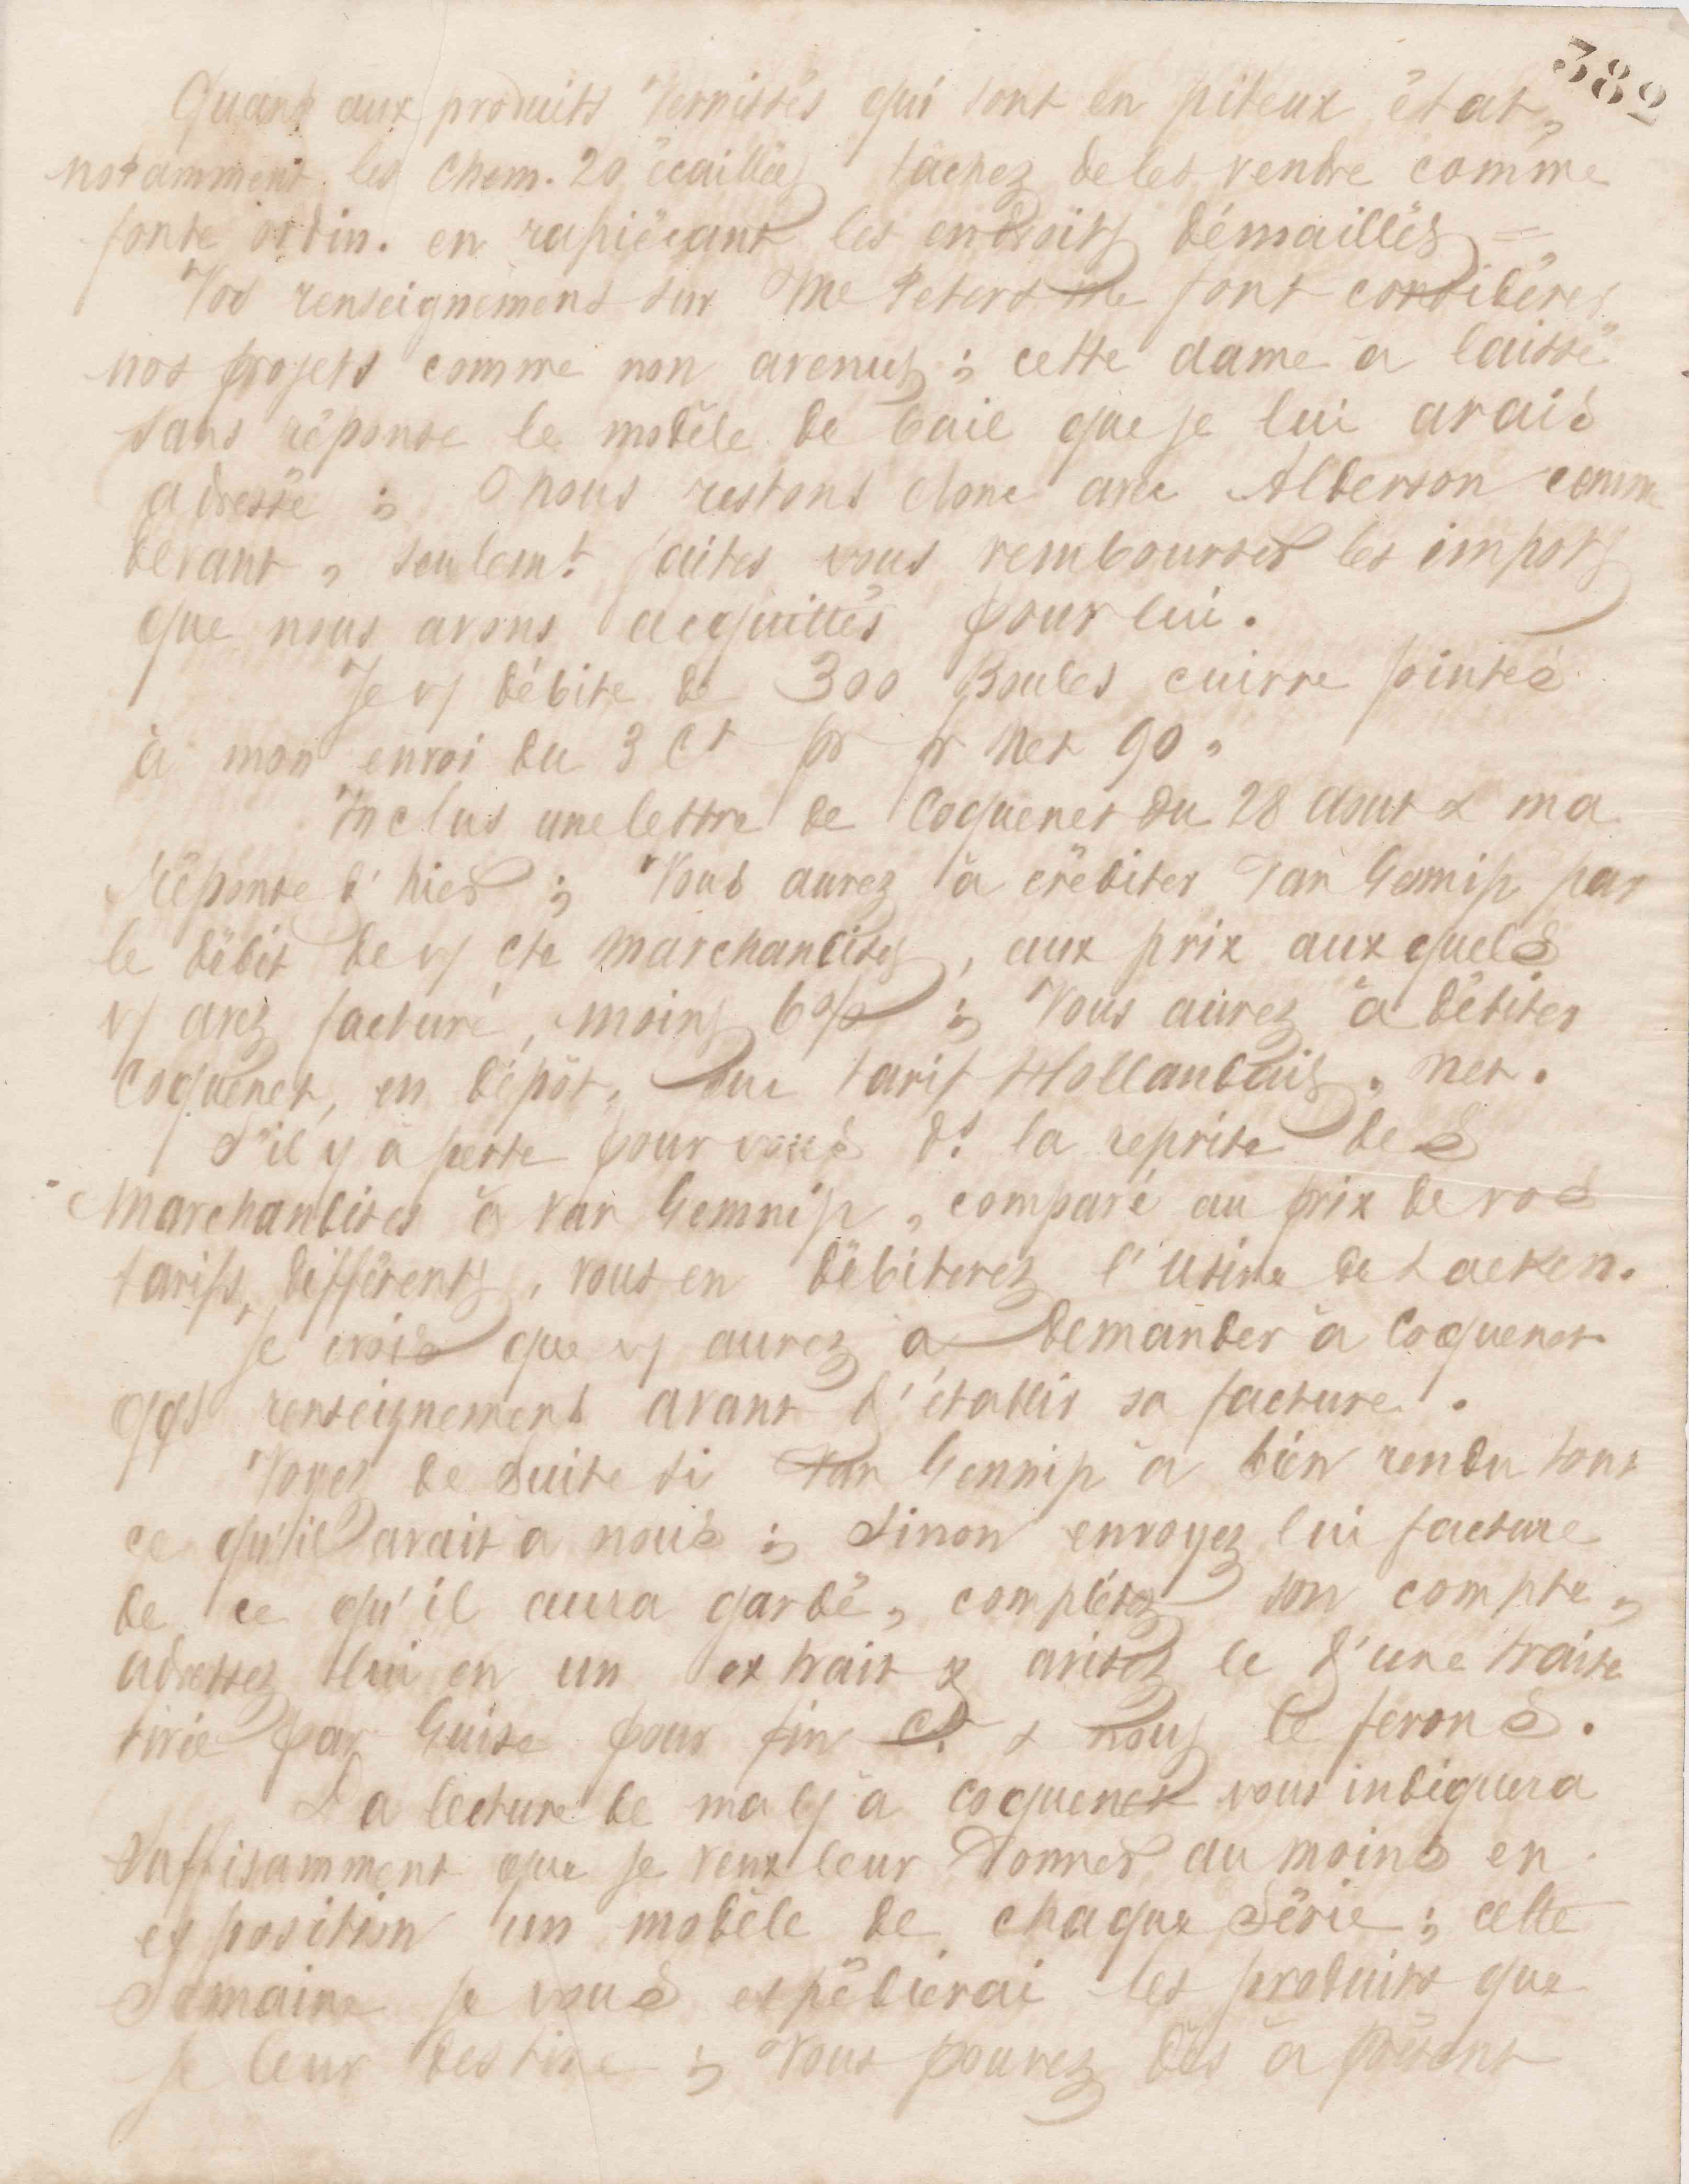 382
Quant aux produits vernissés qui sont en piteux état,
notamment les Chem. 20 écaillées tâchez de les vendre comme
fonte ordin. en rapiéçant les endroits démaillés =
Vos renseignements sur Me Peters me font considérer
nos projets comme non avenus ; cette dame a laissé
sans réponse le modèle de bail que je lui avais
adressé ; nous restons donc avec Alderson comme
devant, seulemt faites vous rembourser les impots
que nous avons acquittés pour lui.
Je v/ débite de 300 Boules cuivre jointes
à mon envoi du 3 Ct pr fr net 90.
Inclus une lettre de Coquenet du 28 aout & ma
Réponse d'hier ; Vous aurez à créditer Van Gennip par
le débit de v/ cte marchandises, aux prix auxquels
v/ avez facturé, moins 6% ; Vous aurez à débiter
Coquenet, en dépôt, au tarif Hollandais, net.
S'il y a perte pour vous ds la reprise des
Marchandises à Van Gennip, comparé au prix de vos
tarifs différents, vous en débiterez l'Usine de Laeken.
Je crois que v/ aurez à demander à Coquenet
qqs renseignements avant d'établir sa facture.
Voyez de suite si Van Gennip a bien rendu tout
ce qu'il avait a nous ; Sinon envoyez lui facture
de ce qu'il aura gardé, complétez son compte,
adressez lui en un extrait & avisez le d'une traite
tirée par Guise pour fin Ct & nous le ferons.
La lecture de ma l/ à Coquenet vous indiquera
suffisamment que je veux leur donner au moins en
exposition un modèle de chaque Série ; cette
Semaine je vous expédierai les produits que
je leur destine ; Vous pouvez dès à présent